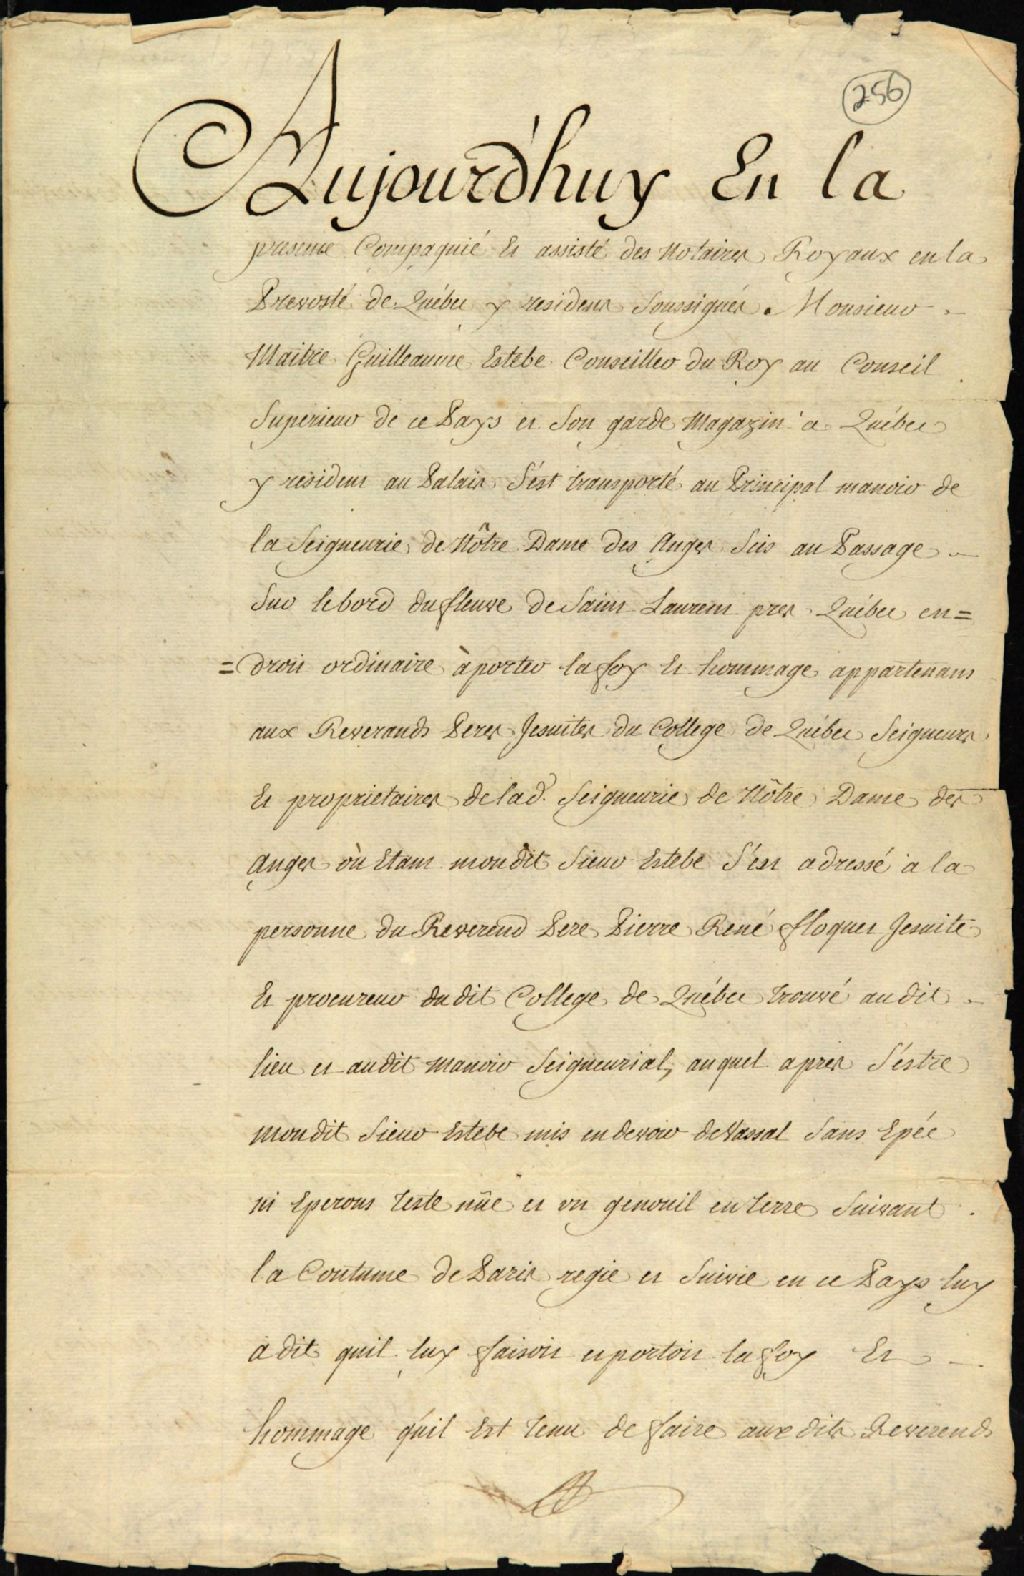 256
Aujourd'huy En la
presence Compagnié Et assisté des Notaires Royaux en la
Prevosté de Québec y residens Soussignés. Monsieur
Maitre Guilleaume Estebe Conseiller du Roy au Conseil
Superieur de ce Pays et Son garde Magazin a Québec
y resident au Palais S'est transporté au Principal manoir de
la Seigneurie de Nôtre Dame des Anges Seis au Passage
Sur le bord du fleuve de Saint Laurent pres Québec en=
=droit ordinaire à porter la foy Et hommage appartenant
aux Reverands Peres Jesuites du College de Québec Seigneurs
Et proprietaires de lad. Seigneurie de Nôtre Dame des
Anges où Etant mondit Sieur Estebe S'est adressé a la
personne du Reverend Pere Pierre René floquet Jesuite
Et procureur dudit College de Québec trouvé audit
lieu et audit Manoir Seigneurial, auquel apres S'éstre
mondit Sieur Estebe mis en devoir de Vassal Sans Epée
ni Eperons Teste nüe et un genouil en terre Suivant
la Coutume de Paris regie et Suivie en ce Pays luy
a dit quil luy faisoit et portoit la foy Et
hommage quil Est tenu de faire auxdits Reverends